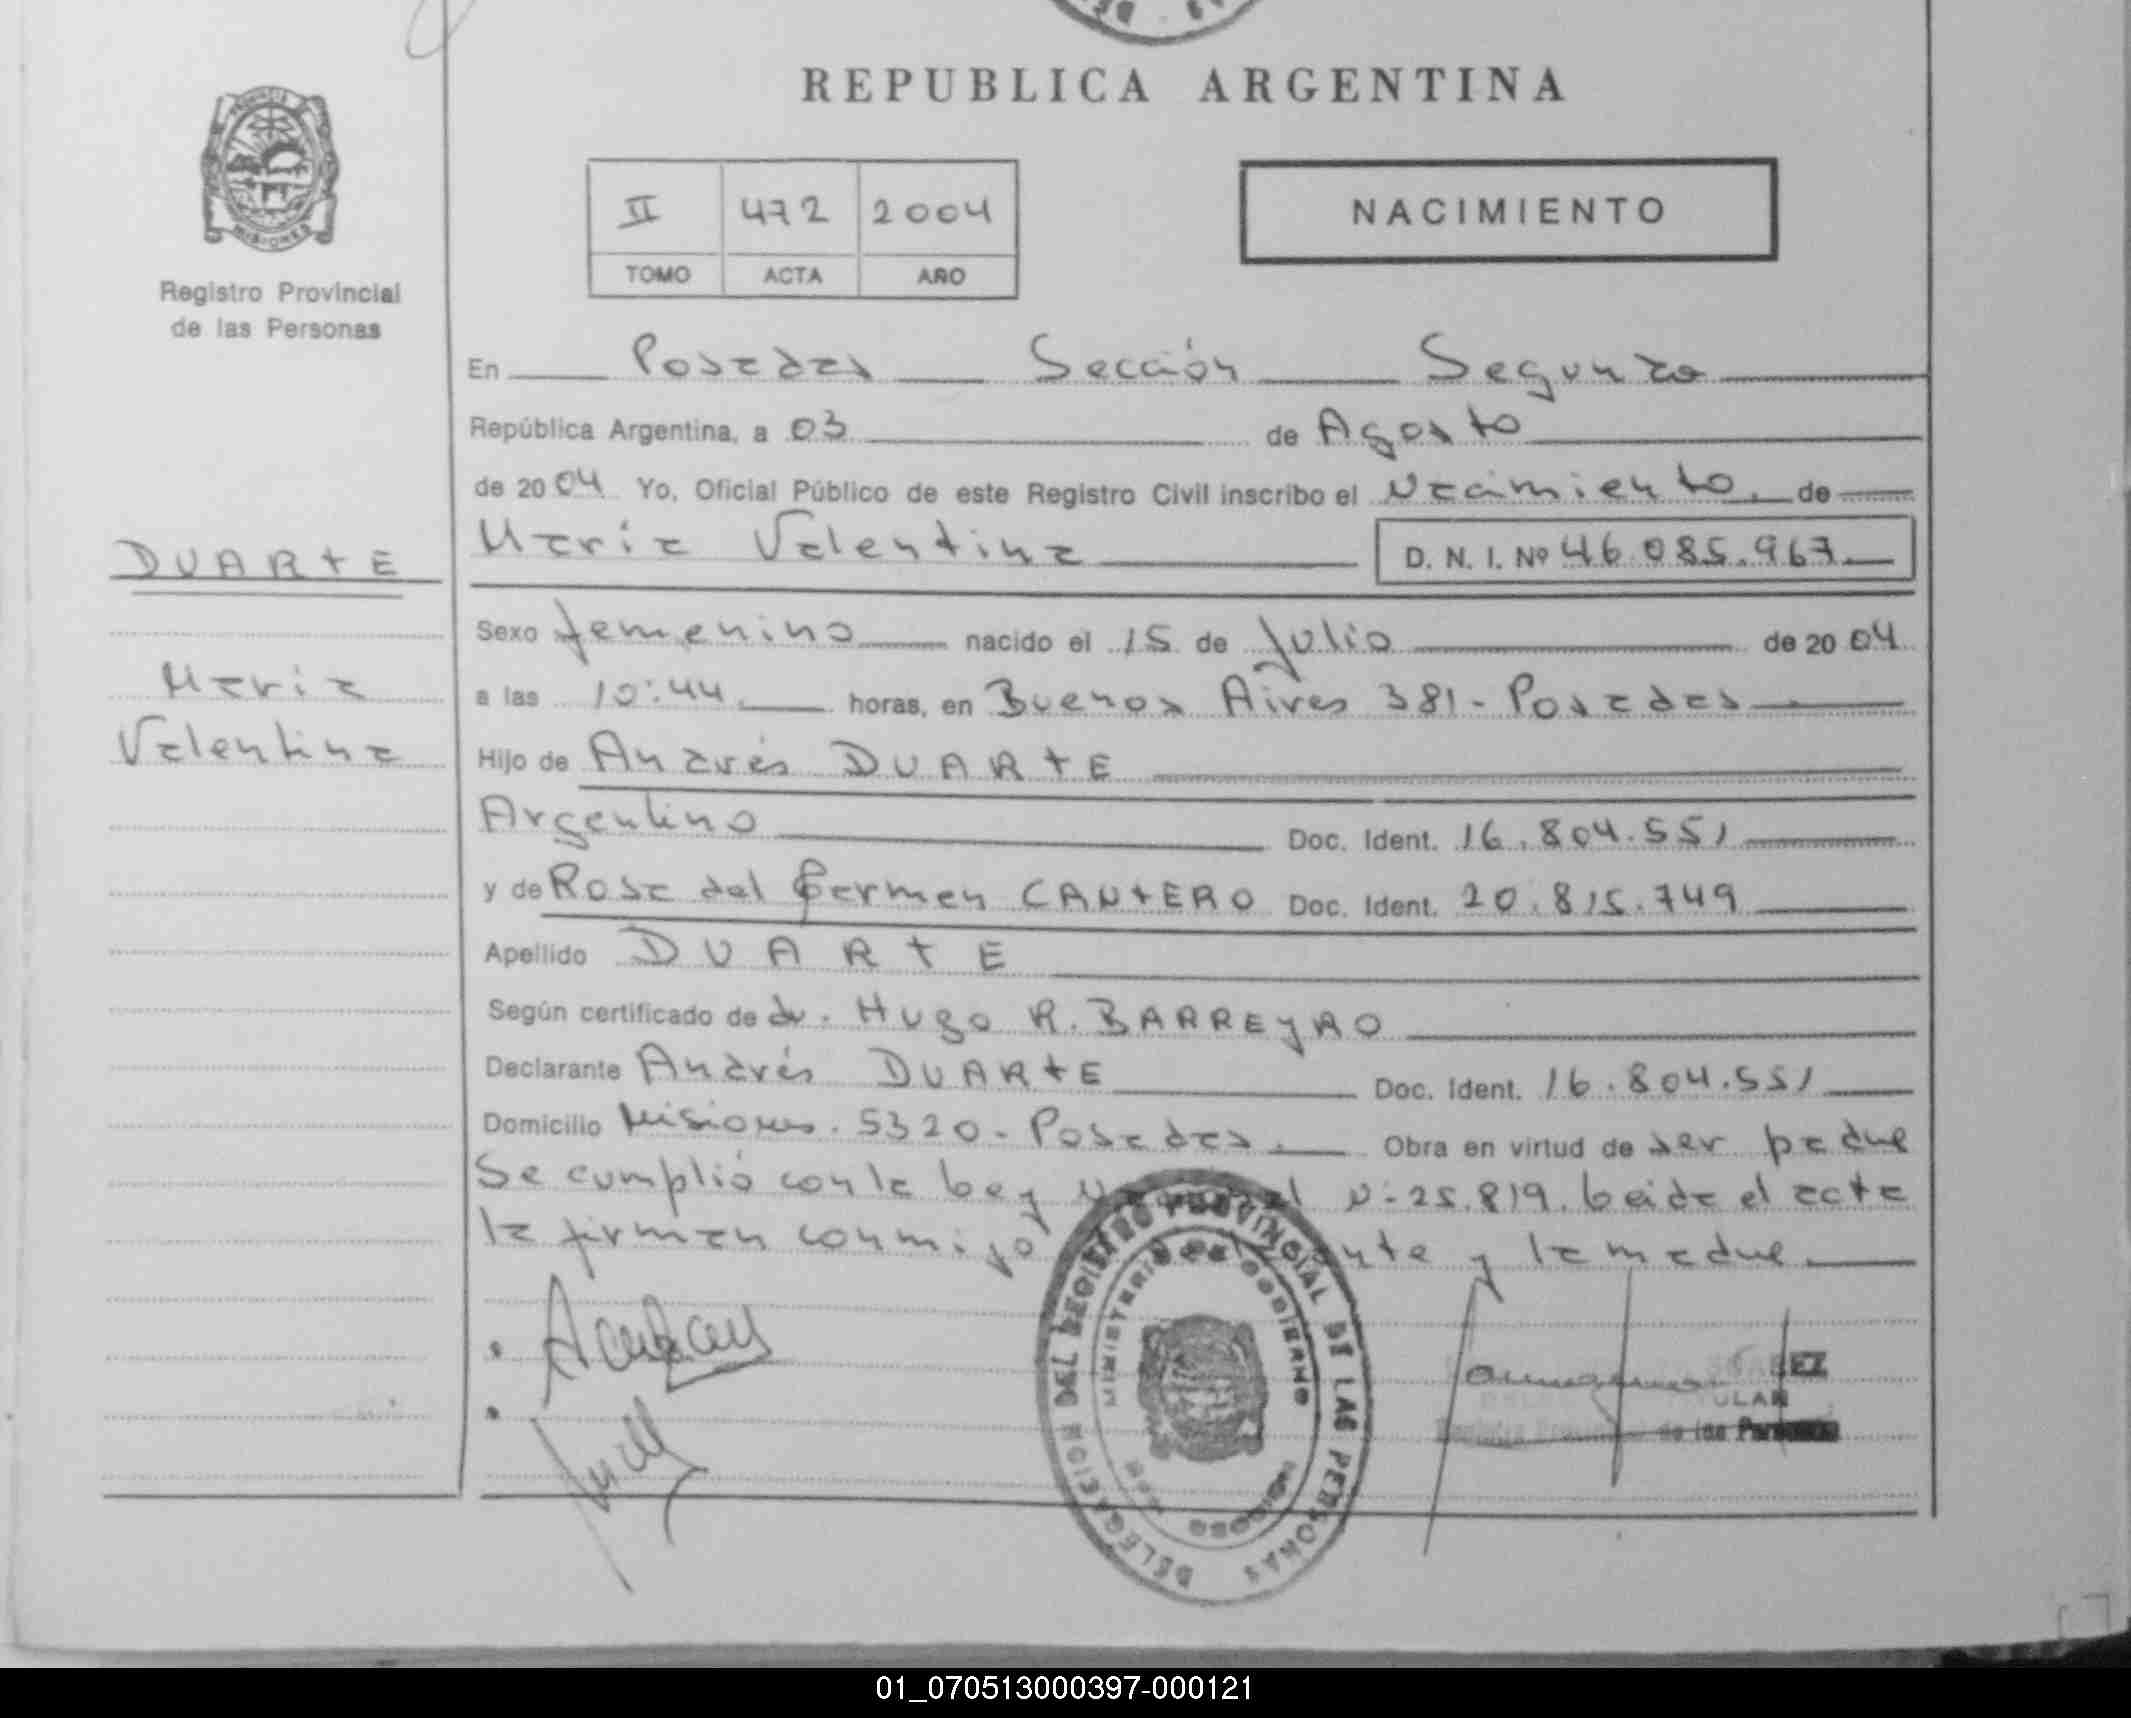 REPUBLICA ARGENTINA
PROVINCIA
MISIONES
Registro Provincial
de las Personas
II 472 2004
TOMO ACTA AÑO
NACIMIENTO
En Posadas Sección Segunda
República Argentina, a 03 de Agosto
de 2004 Yo, Oficial Público de este Registro Civil inscribo el Nacimiento. de
Maria Valentina D. N. I. Nº 46.085.967.
DUARTE
Maria
Valentina
Sexo femenino nacido el 15 de Julio de 2004
a las 10:44. horas, en Buenos Aires 381 - Posadas
Hijo de Andrés DUARTE
Argentino Doc. Ident. 16.804.551
y de Rosa del Carmen CANTERO Doc. Ident. 20.815.749
Apellido DUARTE
Según certificado de dr. Hugo R. BARREYRO
Declarante Andrés DUARTE Doc. Ident. 16.804.551
Domicilio Misiones. 5320 - Posadas. Obra en virtud de ser padre
Se cumplió con la Ley Nacional Nº 25.819. Leida el acta
la firman conmigo y la madre.
DELEGACION DEL REGISTRO PROVINCIAL DE LAS PERSONAS
MINISTERIO DE GOBIERNO
de las Personas
01_070513000397-000121